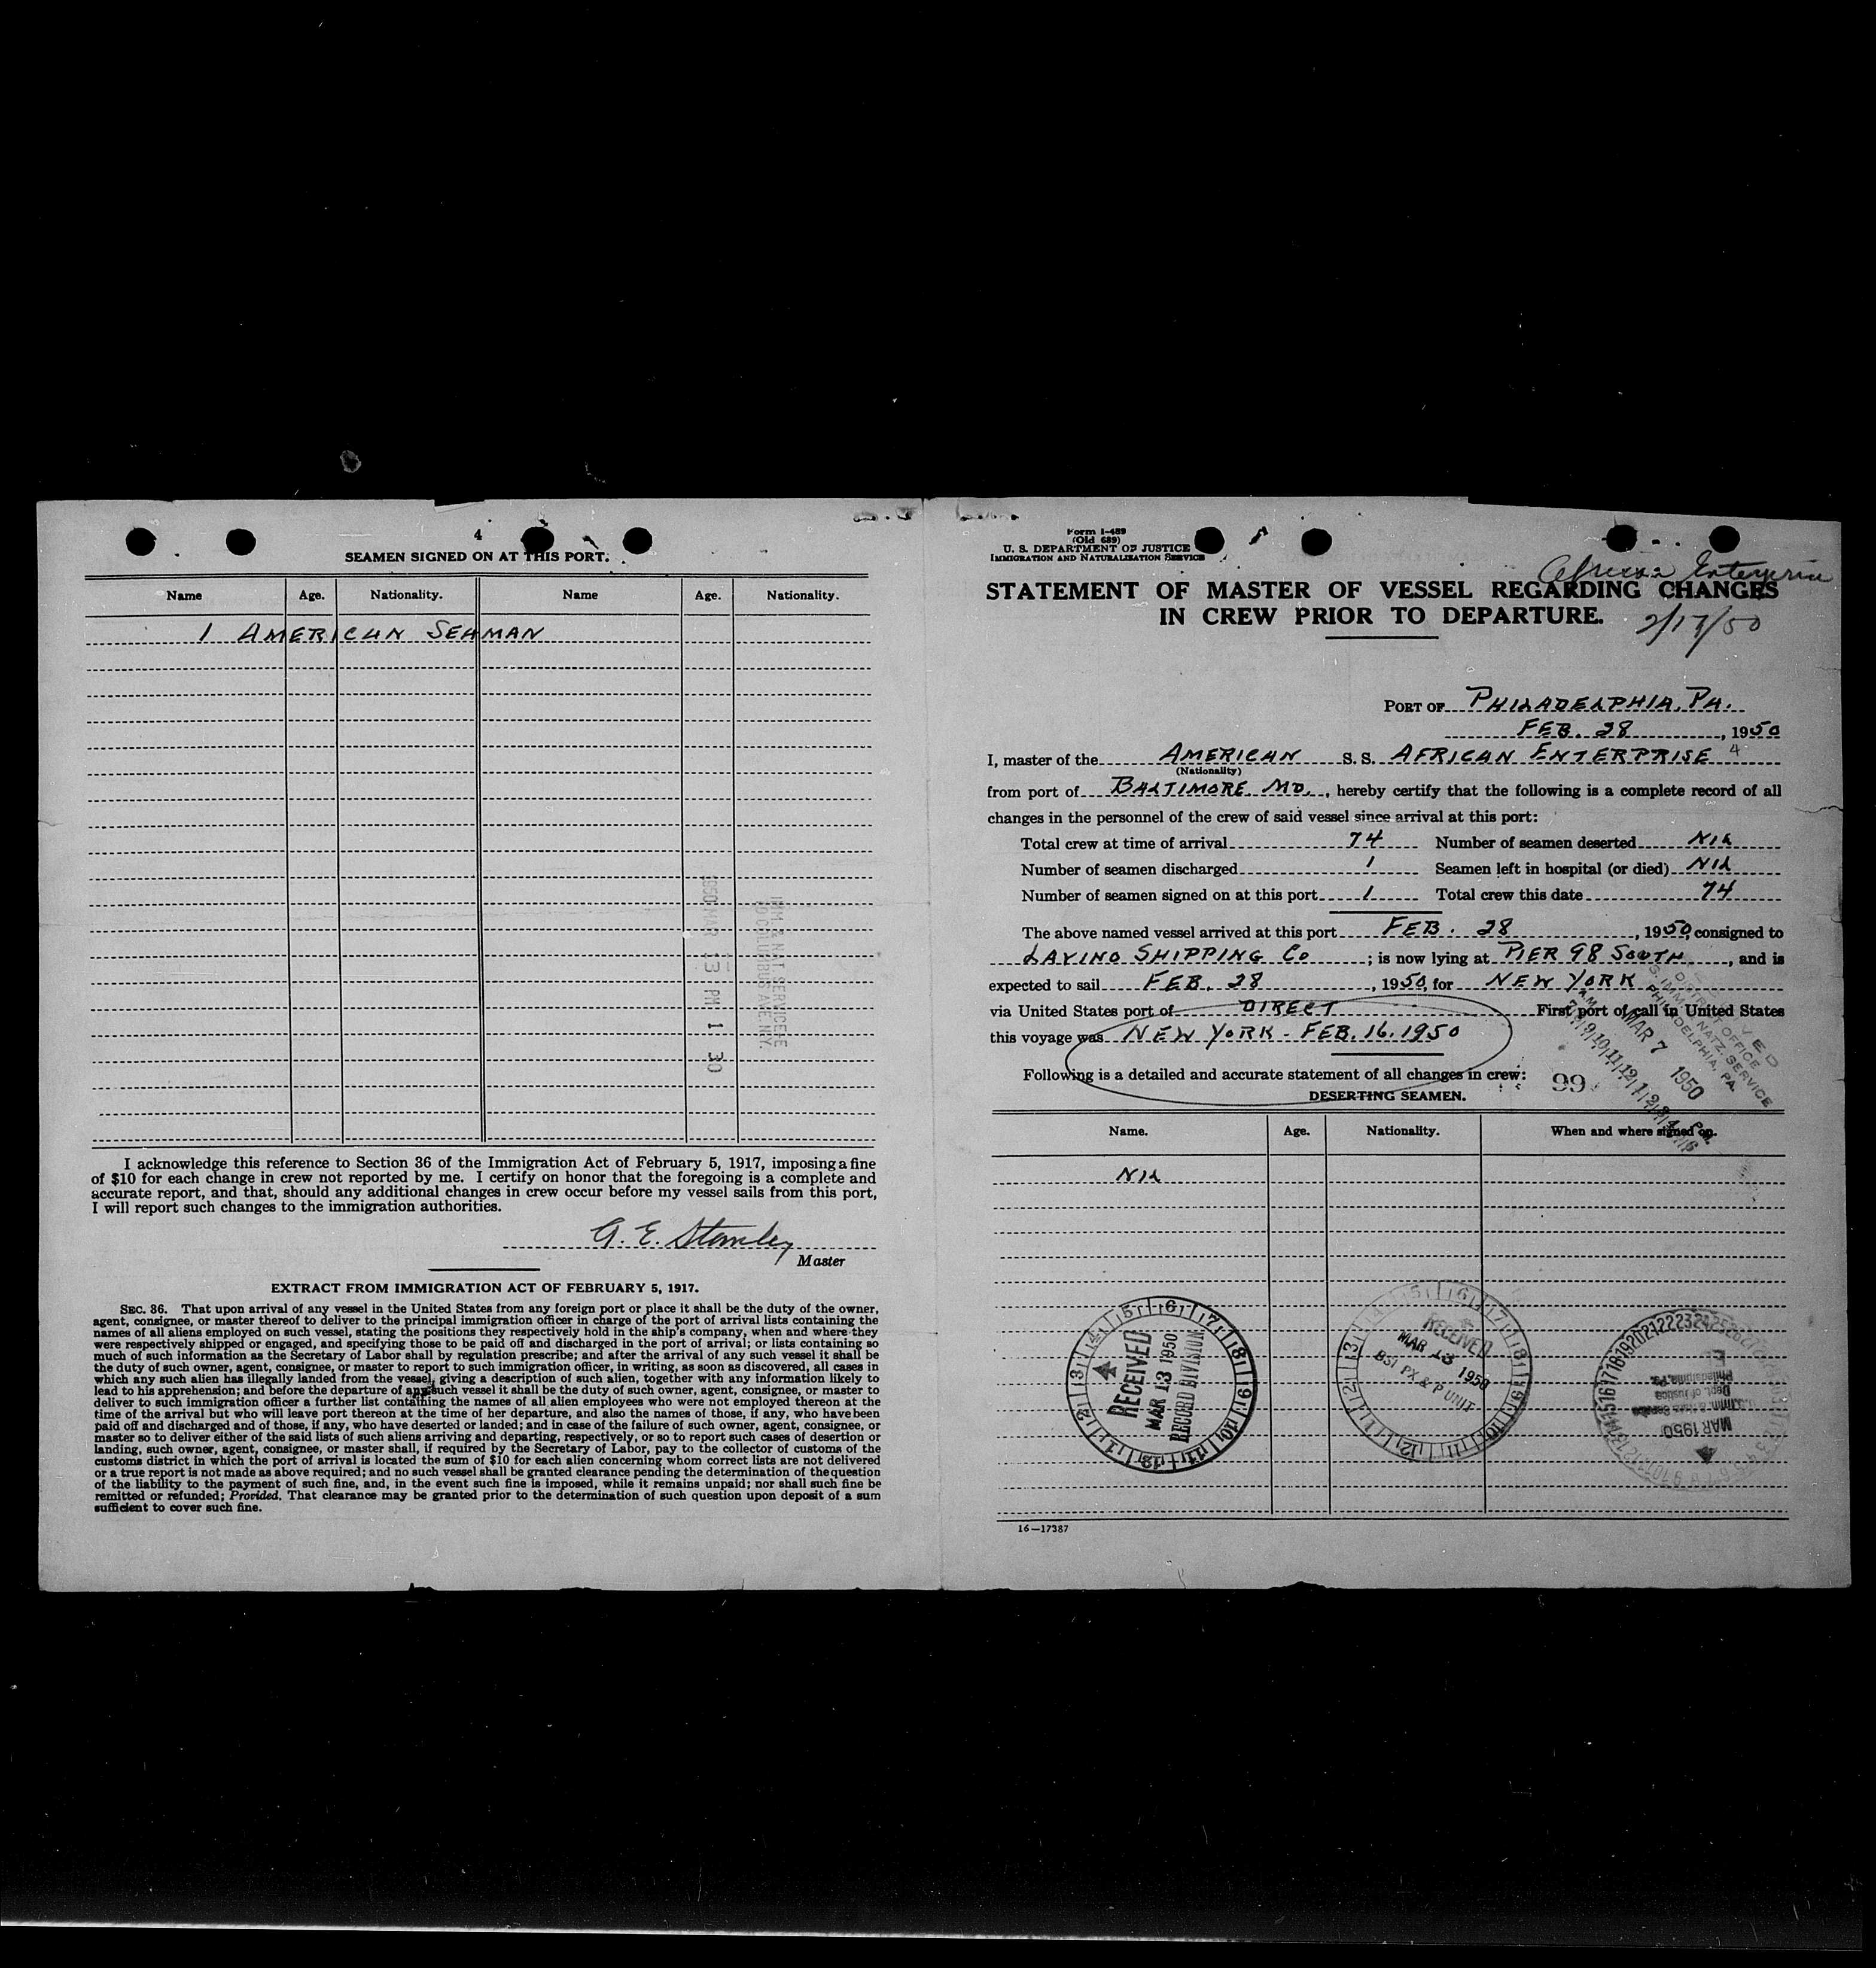 4
SEAMEN SIGNED ON AT THIS PORT.
Name Age. Nationality. Name Age. Nationality.
1 AMERICAN SEAMAN
1950 MAR 13 PM 1 30
IMM. & NAT SERVICE
70 COLUMBUS AVE. N.Y.
I acknowledge this reference to Section 36 of the Immigration Act of February 5, 1917, imposing a fine
of $10 for each change in crew not reported by me. I certify on honor that the foregoing is a complete and
accurate report, and that, should any additional changes in crew occur before my vessel sails from this port,
I will report such changes to the immigration authorities.
G. E. Stanley
Master
EXTRACT FROM IMMIGRATION ACT OF FEBRUARY 5, 1917.
SEC. 36. That upon arrival of any vessel in the United States from any foreign port or place it shall be the duty of the owner,
agent, consignee, or master thereof to deliver to the principal immigration officer in charge of the port of arrival lists containing the
names of all aliens employed on such vessel, stating the positions they respectively hold in the ship's company, when and where they
were respectively shipped or engaged, and specifying those to be paid off and discharged in the port of arrival; or lists containing so
much of such information as the Secretary of Labor shall by regulation prescribe; and after the arrival of any such vessel it shall be
the duty of such owner, agent, consignee, or master to report to such immigration officer, in writing, as soon as discovered, all cases in
which any such alien has illegally landed from the vessel, giving a description of such alien, together with any information likely to
lead to his apprehension; and before the departure of any such vessel it shall be the duty of such owner, agent, consignee, or master to
deliver to such immigration officer a further list containing the names of all alien employees who were not employed thereon at the
time of the arrival but who will leave port thereon at the time of her departure, and also the names of those, if any, who have been
paid off and discharged and of those, if any, who have deserted or landed; and in case of the failure of such owner, agent, consignee, or
master so to deliver either of the said lists of such aliens arriving and departing, respectively, or so to report such cases of desertion or
landing, such owner, agent, consignee, or master shall, if required by the Secretary of Labor, pay to the collector of customs of the
customs district in which the port of arrival is located the sum of $10 for each alien concerning whom correct lists are not delivered
or a true report is not made as above required; and no such vessel shall be granted clearance pending the determination of the question
of the liability to the payment of such fine, and, in the event such fine is imposed, while it remains unpaid; nor shall such fine be
remitted or refunded; Provided, That clearance may be granted prior to the determination of such question upon deposit of a sum
sufficient to cover such fine.
Form I-489
(Old 689)
U. S. DEPARTMENT OF JUSTICE
IMMIGRATION AND NATURALIZATION SERVICE
African Enterprise
STATEMENT OF MASTER OF VESSEL REGARDING CHANGES
IN CREW PRIOR TO DEPARTURE.
2/17/50
PORT OF PHILADELPHIA, PA.
FEB. 28, 1950
I, master of the AMERICAN S. S. AFRICAN ENTERPRISE 4
(Nationality)
from port of BALTIMORE MD., hereby certify that the following is a complete record of all
changes in the personnel of the crew of said vessel since arrival at this port:
Total crew at time of arrival 74 Number of seamen deserted NIL
Number of seamen discharged 1 Seamen left in hospital (or died) NIL
Number of seamen signed on at this port 1 Total crew this date 74
The above named vessel arrived at this port FEB. 28, 1950, consigned to
LAVINO SHIPPING Co; is now lying at PIER 98 SOUTH, and is
expected to sail FEB. 28, 1950, for NEW YORK
via United States port of DIRECT First port of call in United States
this voyage was NEW YORK - FEB. 16. 1950
Following is a detailed and accurate statement of all changes in crew:
99
RECEIVED
DISTRICT OFFICE
U.S. IMM. & NATZ. SERVICE
PHILADELPHIA, PA.
MAR 7 1950
DESERTING SEAMEN.
Name. Age. Nationality. When and where signed on.
NIL
RECEIVED
MAR 13 1950
RECORD DIVISION
RECEIVED
MAR 13 1950
BSI PX & P UNIT
MAR 1950
Dept. of Justice
Philadelphia, Pa.
16—17387